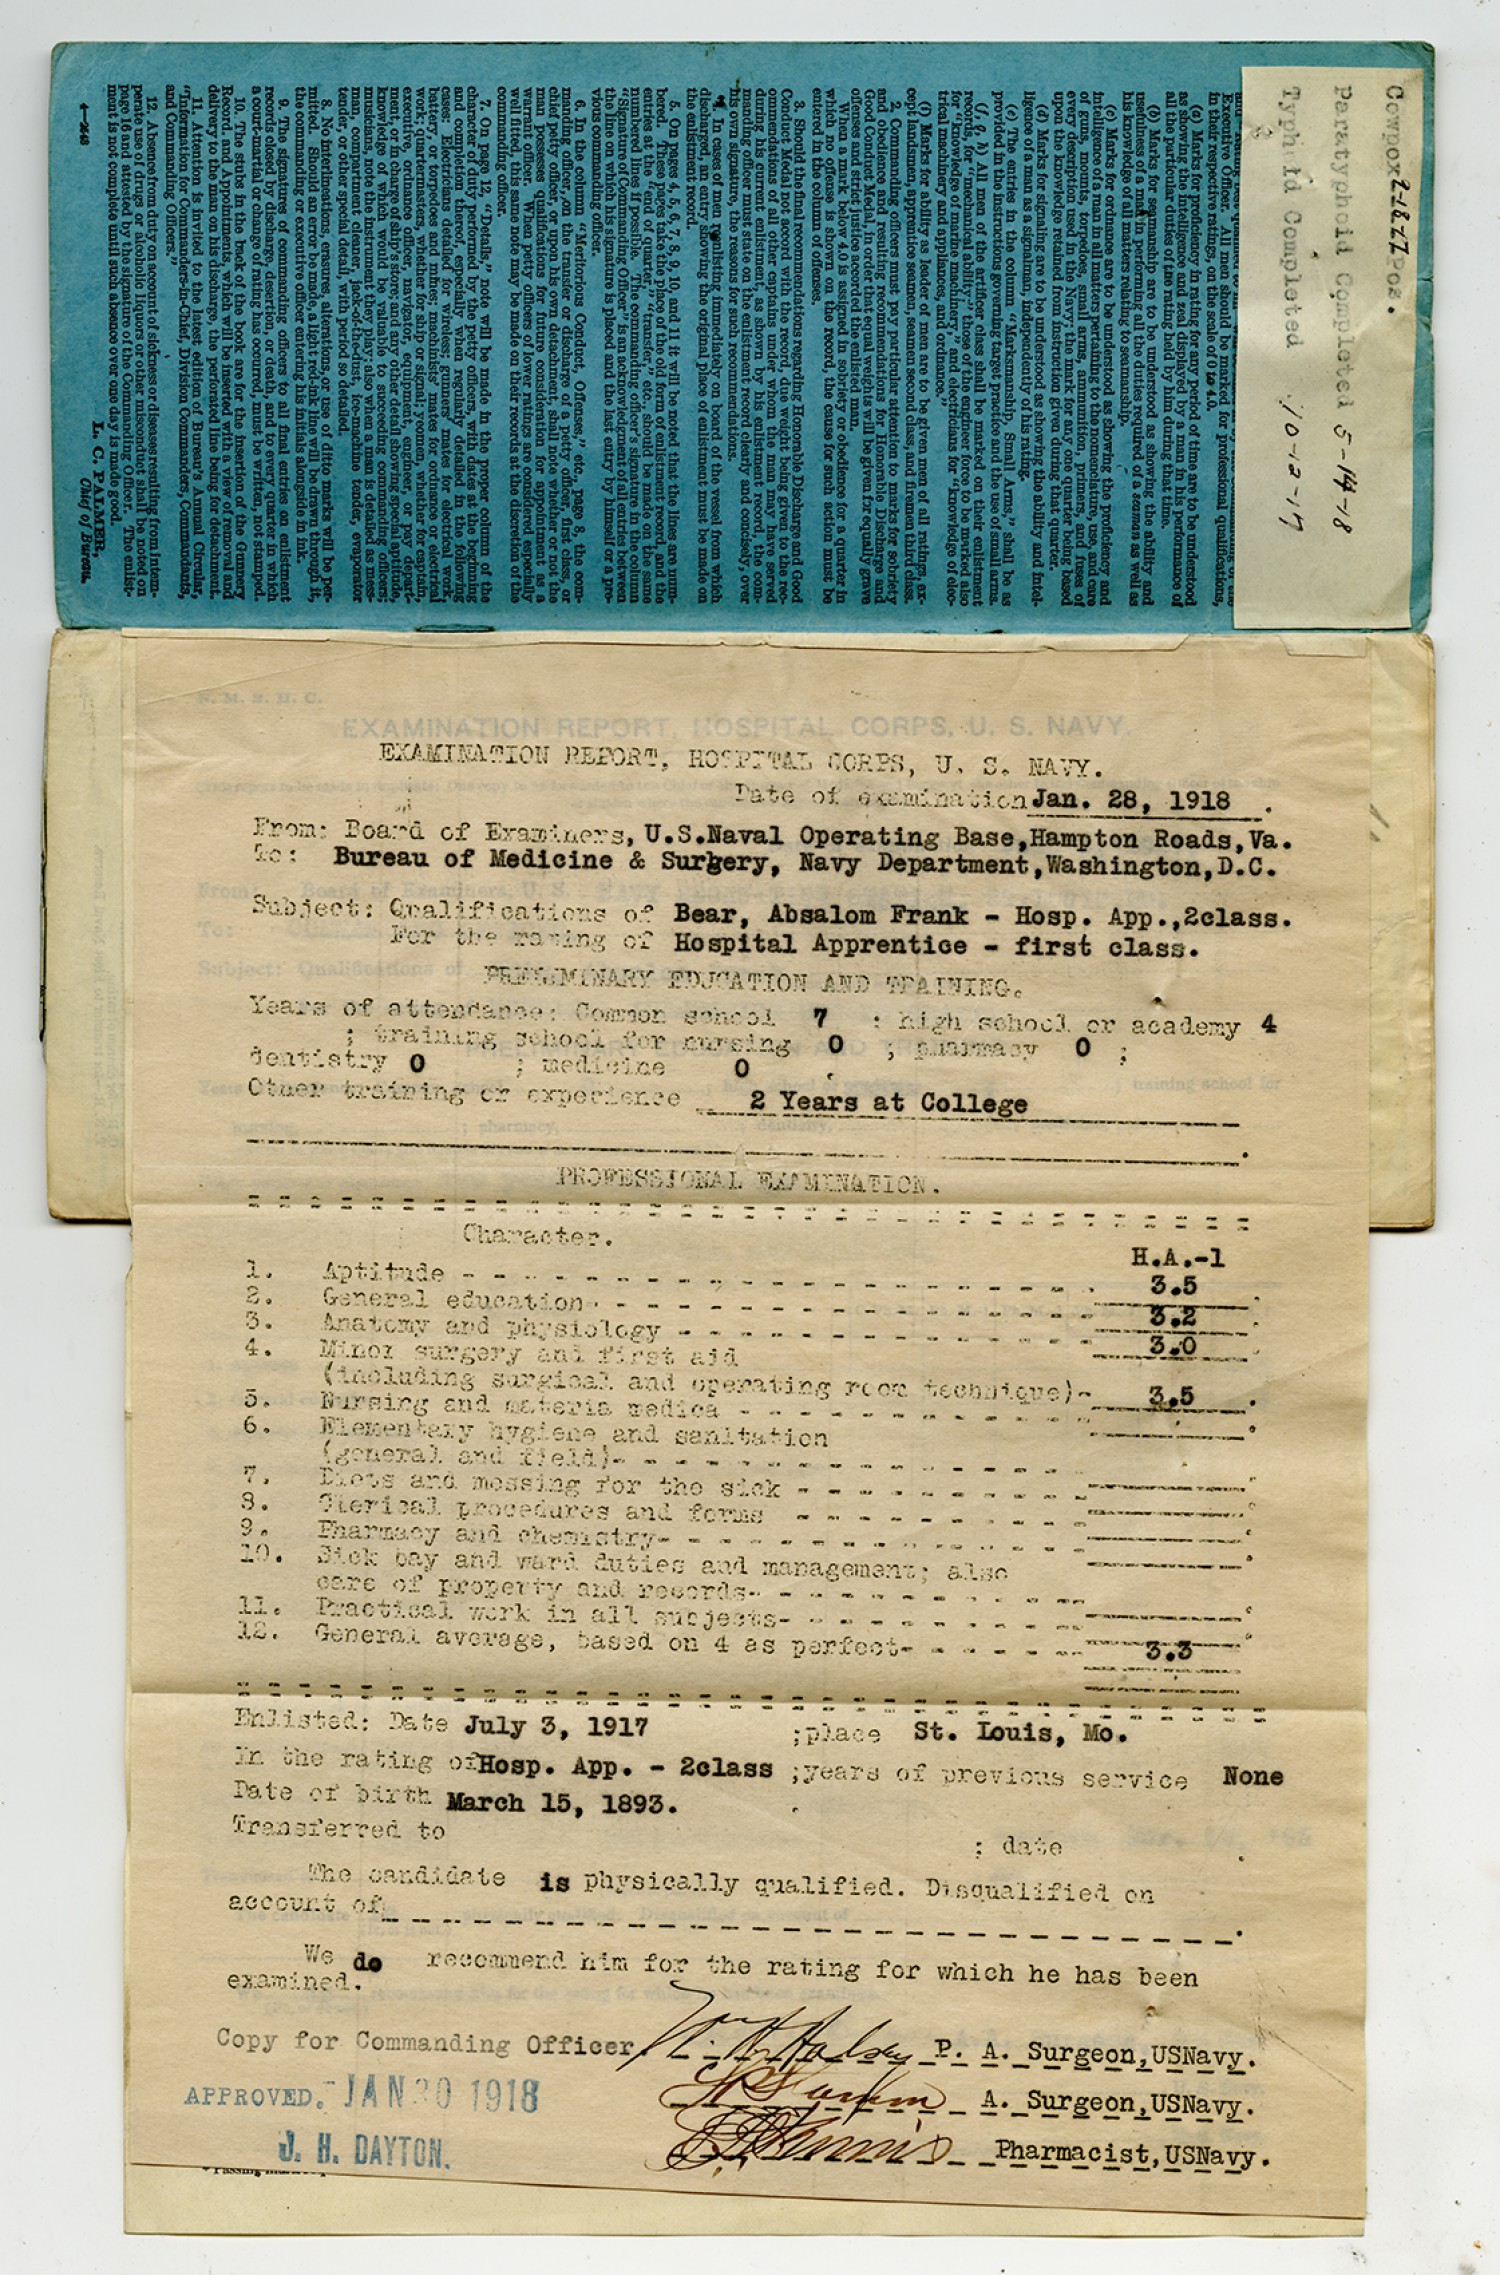 Cowpox 2-18-17 Pos.
Paratyphoid Completed 5-14-18
Typhoid Completed 10-12-17
Executive Officer. All men should be marked for professional qualifications,
in their respective ratings, on the scale of 0 to 4.0.
(a) Marks for proficiency in rating for any period of time are to be understood
as showing the intelligence and zeal displayed by a man in his performance of
all the particular duties of the rating held by him during that time.
(b) Marks for seamanship are to be understood as showing the ability and
usefulness of a man in performing all the duties required of a seaman as well as
his knowledge of all matters relating to seamanship.
(c) Marks for ordnance are to be understood as showing the proficiency and
intelligence of a man in all matters pertaining to the nomenclature, use, and care
of guns, mounts, torpedoes, small arms, ammunition, primers, and fuses of
every description used in the Navy; the mark for any one quarter being based
upon the knowledge retained from instruction given during that quarter.
(d) Marks for signaling are to be understood as showing the ability and intel-
ligence of a man as a signalman, independently of his rating.
(e) The entries in the column "Marksmanship, Small Arms," shall be as
provided in the instructions governing target practice and the use of small arms.
(f, g, h) All men of the artificer class shall be marked on their enlistment
records, for "mechanical ability;" those of the engineer force to be marked also
for "knowledge of marine machinery," and electricians for "knowledge of elec-
trical machinery and appliances, and ordnance."
(i) Marks for ability as leader of men are to be given men of all ratings, ex-
cept landsmen, apprentice seamen, seamen second class, and firemen third class.
2. Commanding officers must pay particular attention to marks for sobriety
and obedience and resulting recommendations for Honorable Discharge and
Good Conduct Medal, in order that equal weights will be given for equally grave
offenses and strict justice accorded the enlisted man.
When a mark below 4.0 is assigned in sobriety or obedience for a quarter in
which no offense is shown on the record, the cause for such action must be
entered in the column of offenses.
3. Should the final recommendations regarding Honorable Discharge and Good
Conduct Medal not accord with the record, due weight being given to the rec-
ommendations of all other captains under whom the man may have served
during his current enlistment, as shown by his enlistment record, the com-
manding officer must state on the enlistment record clearly and concisely, over
his own signature, the reasons for such recommendations.
4. In cases of men reenlisting immediately on board of the vessel from which
discharged, an entry showing the original place of enlistment must be made on
the enlistment record.
5. On pages 4, 5, 6, 7, 8, 9, 10, and 11 it will be noted that the lines are num-
bered. These pages take the place of the old form of enlistment record, and the
entries at the "end of quarter," "transfer," etc., should be made on the same
numbered lines if possible. The commanding officer's signature in the column
"Signature of Commanding Officer" is an acknowledgment of all entries between
the line on which his signature is placed and the last entry by himself or a pre-
vious commanding officer.
6. In the column "Meritorious Conduct, Offenses," etc., page 8, the com-
manding officer, on the transfer or discharge of a petty officer, first class, or
chief petty officer, or upon his own detachment, shall note whether or not the
man possesses qualifications for future consideration for appointment as a
warrant officer. When petty officers of lower ratings are considered especially
well fitted, this same note may be made on their records at the discretion of the
commanding officer.
7. On page 12, "Details," note will be made in the proper column of the
character of duty performed by the petty officers, with dates at the beginning
and completion thereof, especially when regularly detailed in the following
cases: Electricians detailed for wireless; gunners' mates for electrical work,
battery, or torpedoes and mines; machinists' mates for ordnance or electrical
work; quartermasters, whether for signal; yeomen, whether for captain,
executive, ordnance, navigator, equipment, engineer, or pay depart-
ment, or in charge of ship's store; and any other detail showing special aptitude,
knowledge of which would be valuable to succeeding commanding officers;
musicians, note the instrument they play; also when a man is detailed as mess-
man, compartment cleaner, jack-of-the-dust, ice-machine tender, evaporator
tender, or other special detail, with period so detailed.
8. No interlineations, erasures, alterations, or use of ditto marks will be per-
mitted. Should an error be made, a light red-ink line will be drawn through it,
the commanding or executive officer entering his initials alongside in ink.
9. The signatures of commanding officers to all final entries on enlistment
records closed by discharge, desertion, or death, and to every quarter in which
a court-martial or change of rating has occurred, must be written, not stamped.
10. The stubs in the back of the book are for the insertion of the Gunnery
Record, and Appointments, which will be inserted with a view of removal and
delivery to the man on his discharge, the perforated line being for detachment.
11. Attention is invited to the latest edition of Bureau's Annual Circular,
"Information for Commanders-in-Chief, Division Commanders, Commandants,
and Commanding Officers."
12. Absence from duty on account of sickness or disease resulting from intem-
perate use of drugs or alcoholic liquors or other misconduct shall be noted on
page 16 and attested by the signature of the Commanding Officer. The enlist-
ment is not complete until such absence over one day is made good.
L. C. PALMER,
Chief of Bureau.
4—248
N. M. S. H. C.
EXAMINATION REPORT, HOSPITAL CORPS, U. S. NAVY.
EXAMINATION REPORT, HOSPITAL CORPS, U. S. NAVY.
Date of examination Jan. 28, 1918 .
From: Board of Examiners, U.S.Naval Operating Base,Hampton Roads,Va.
To: Bureau of Medicine & Surgery, Navy Department,Washington,D.C.
Subject: Qualifications of Bear, Absalom Frank - Hosp. App.,2class.
For the rating of Hospital Apprentice - first class.
PRELIMINARY EDUCATION AND TRAINING.
Years of attendance: Common school 7 : high school or academy 4
; training school for nursing 0 ; pharmacy 0 ;
dentistry 0 ; medicine 0 .
Other training or experience 2 Years at College
PROFESSIONAL EXAMINATION.
Character.
H.A.-1
1. Aptitude - - - 3.5
2. General education - - - 3.2
3. Anatomy and physiology - - - 3.0
4. Minor surgery and first aid
(including surgical and operating room technique)- 3.5
5. Nursing and materia medica - - -
6. Elementary hygiene and sanitation
(general and field)- - -
7. Diets and messing for the sick - - -
8. Clerical procedures and forms - - -
9. Pharmacy and chemistry- - -
10. Sick bay and ward duties and management; also
care of property and records- - -
11. Practical work in all subjects- - -
12. General average, based on 4 as perfect- - - 3.3
Enlisted: Date July 3, 1917 ;place St. Louis, Mo.
In the rating of Hosp. App. - 2class ;years of previous service None
Date of birth March 15, 1893. .
Transferred to ; date .
The candidate is physically qualified. Disqualified on
account of .
We do recommend him for the rating for which he has been
examined.
Copy for Commanding Officer. P. A. Surgeon,USNavy.
A. Surgeon,USNavy.
APPROVED. JAN 30 1918
J. H. DAYTON.
Pharmacist,USNavy.